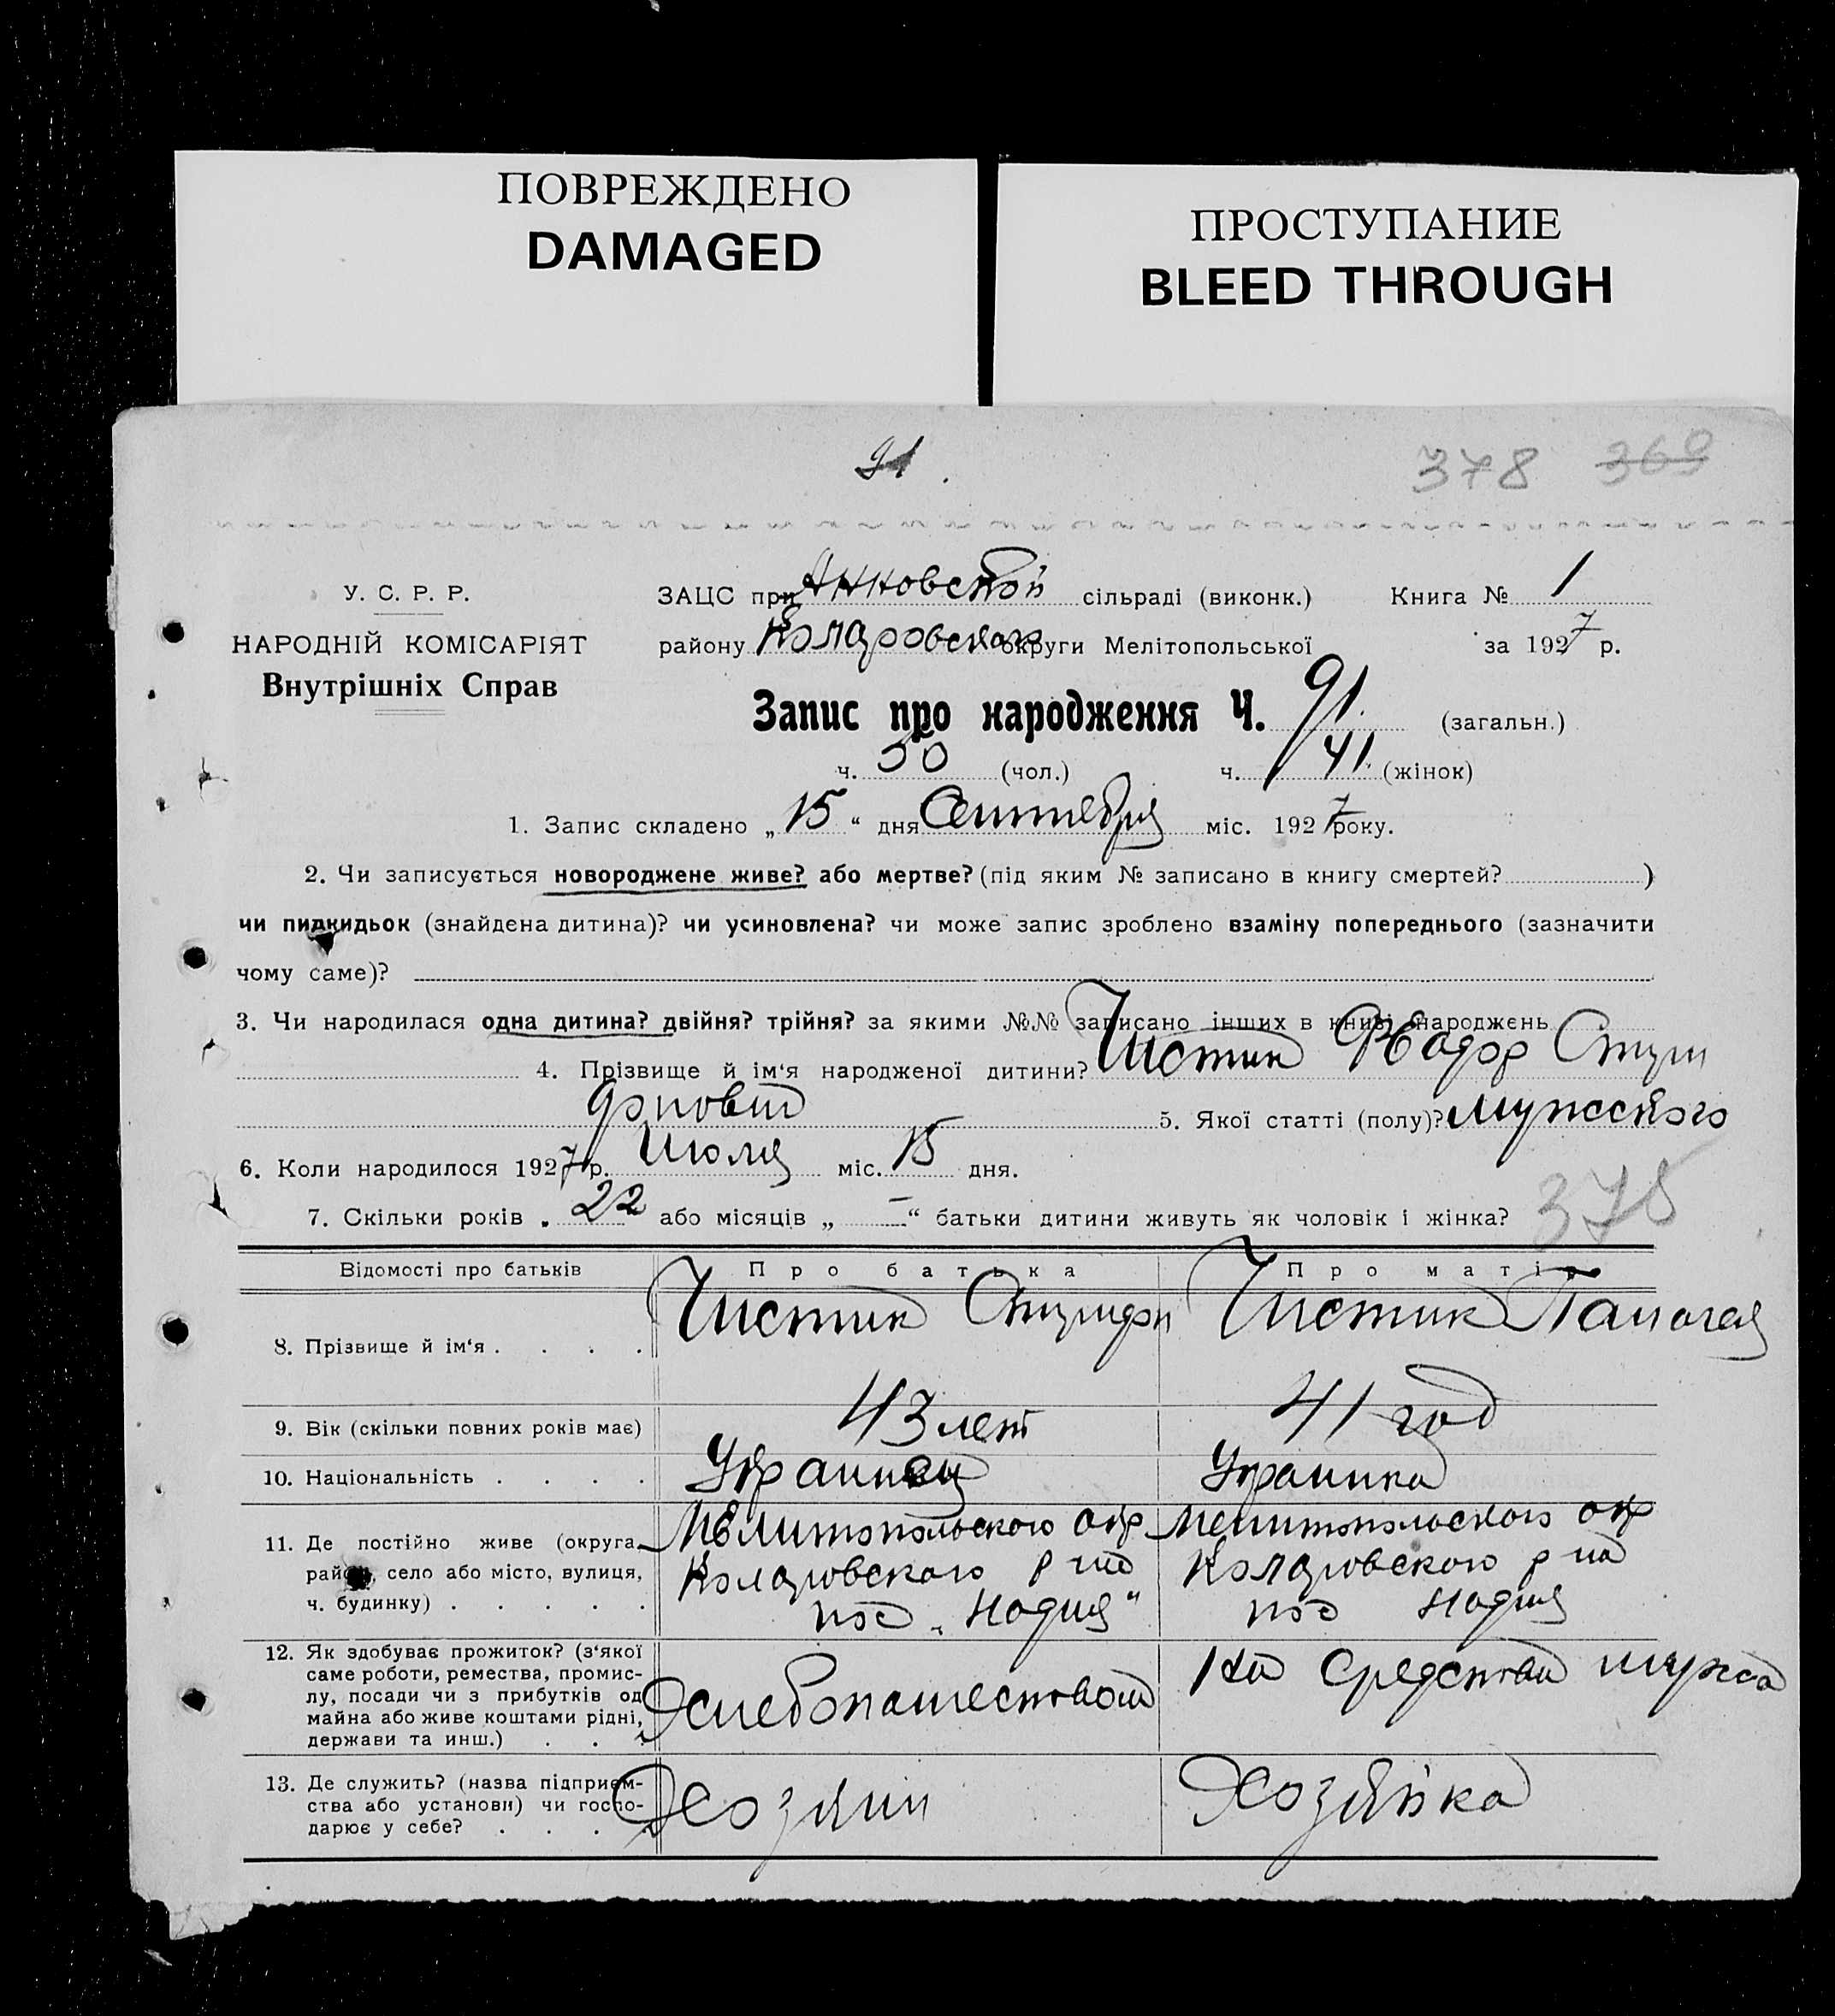 ПОВРЕЖДЕНО
DAMAGED
ПРОСТУПАНИЕ
BLEED THROUGH
91
378 369
У. С. Р. Р.
НАРОДНІЙ КОМІСАРІЯТ
Внутрішніх Справ
ЗАЦС при Анновской сільраді (виконк.) Книга № 1
району Коларовского округи Мелітопольської за 1927 р.
Запис про народження Ч. 91 (загальн.)
ч. 50 (чол.) ч. 41 (жінок)
1. Запис складено „ 15 “ дня Сентября міс. 1927 року.
2. Чи записується новороджене живе? або мертве? (під яким № записано в книгу смертей? )
чи пидкидьок (знайдена дитина)? чи усиновлена? чи може запис зроблено взаміну попереднього (зазначити
чому саме)?
3. Чи народилася одна дитина? двійня? трійня? за якими №№ записано інших в книзі народжень
4. Прізвище й ім‘я народженої дитини? Чистик Феодор
5. Якої статті (полу)? мужского
6. Коли народилося 1927 р. Июля міс. 15 дня.
7. Скільки років „ 22 або місяців „ — “ батьки дитини живуть як чоловік і жінка? 378
Відомості про батьків Про батька Про матір
8. Прізвище й ім‘я . . . . Чистик Чистик
9. Вік (скільки повних років має) 43 лет 41 год
10. Національність . . . . Украинец Украинка
11. Де постійно живе (округа, район, село або місто, вулиця, ч. будинку) . . . . .
Мелитопольского окр Коларовского р на пос „Надия“
Мелитопольского окр Коларовского р на пос Надия
12. Як здобуває прожиток? (з‘якої саме роботи, ремества, промислу, посади чи з прибутків од майна або живе коштами рідні, держави та инш.) . . .
Хлебопашеством
На средства мужа
13. Де служить? (назва підприємства або установи) чи господарює у себе? . . . .
Хозяин
Хозяйка